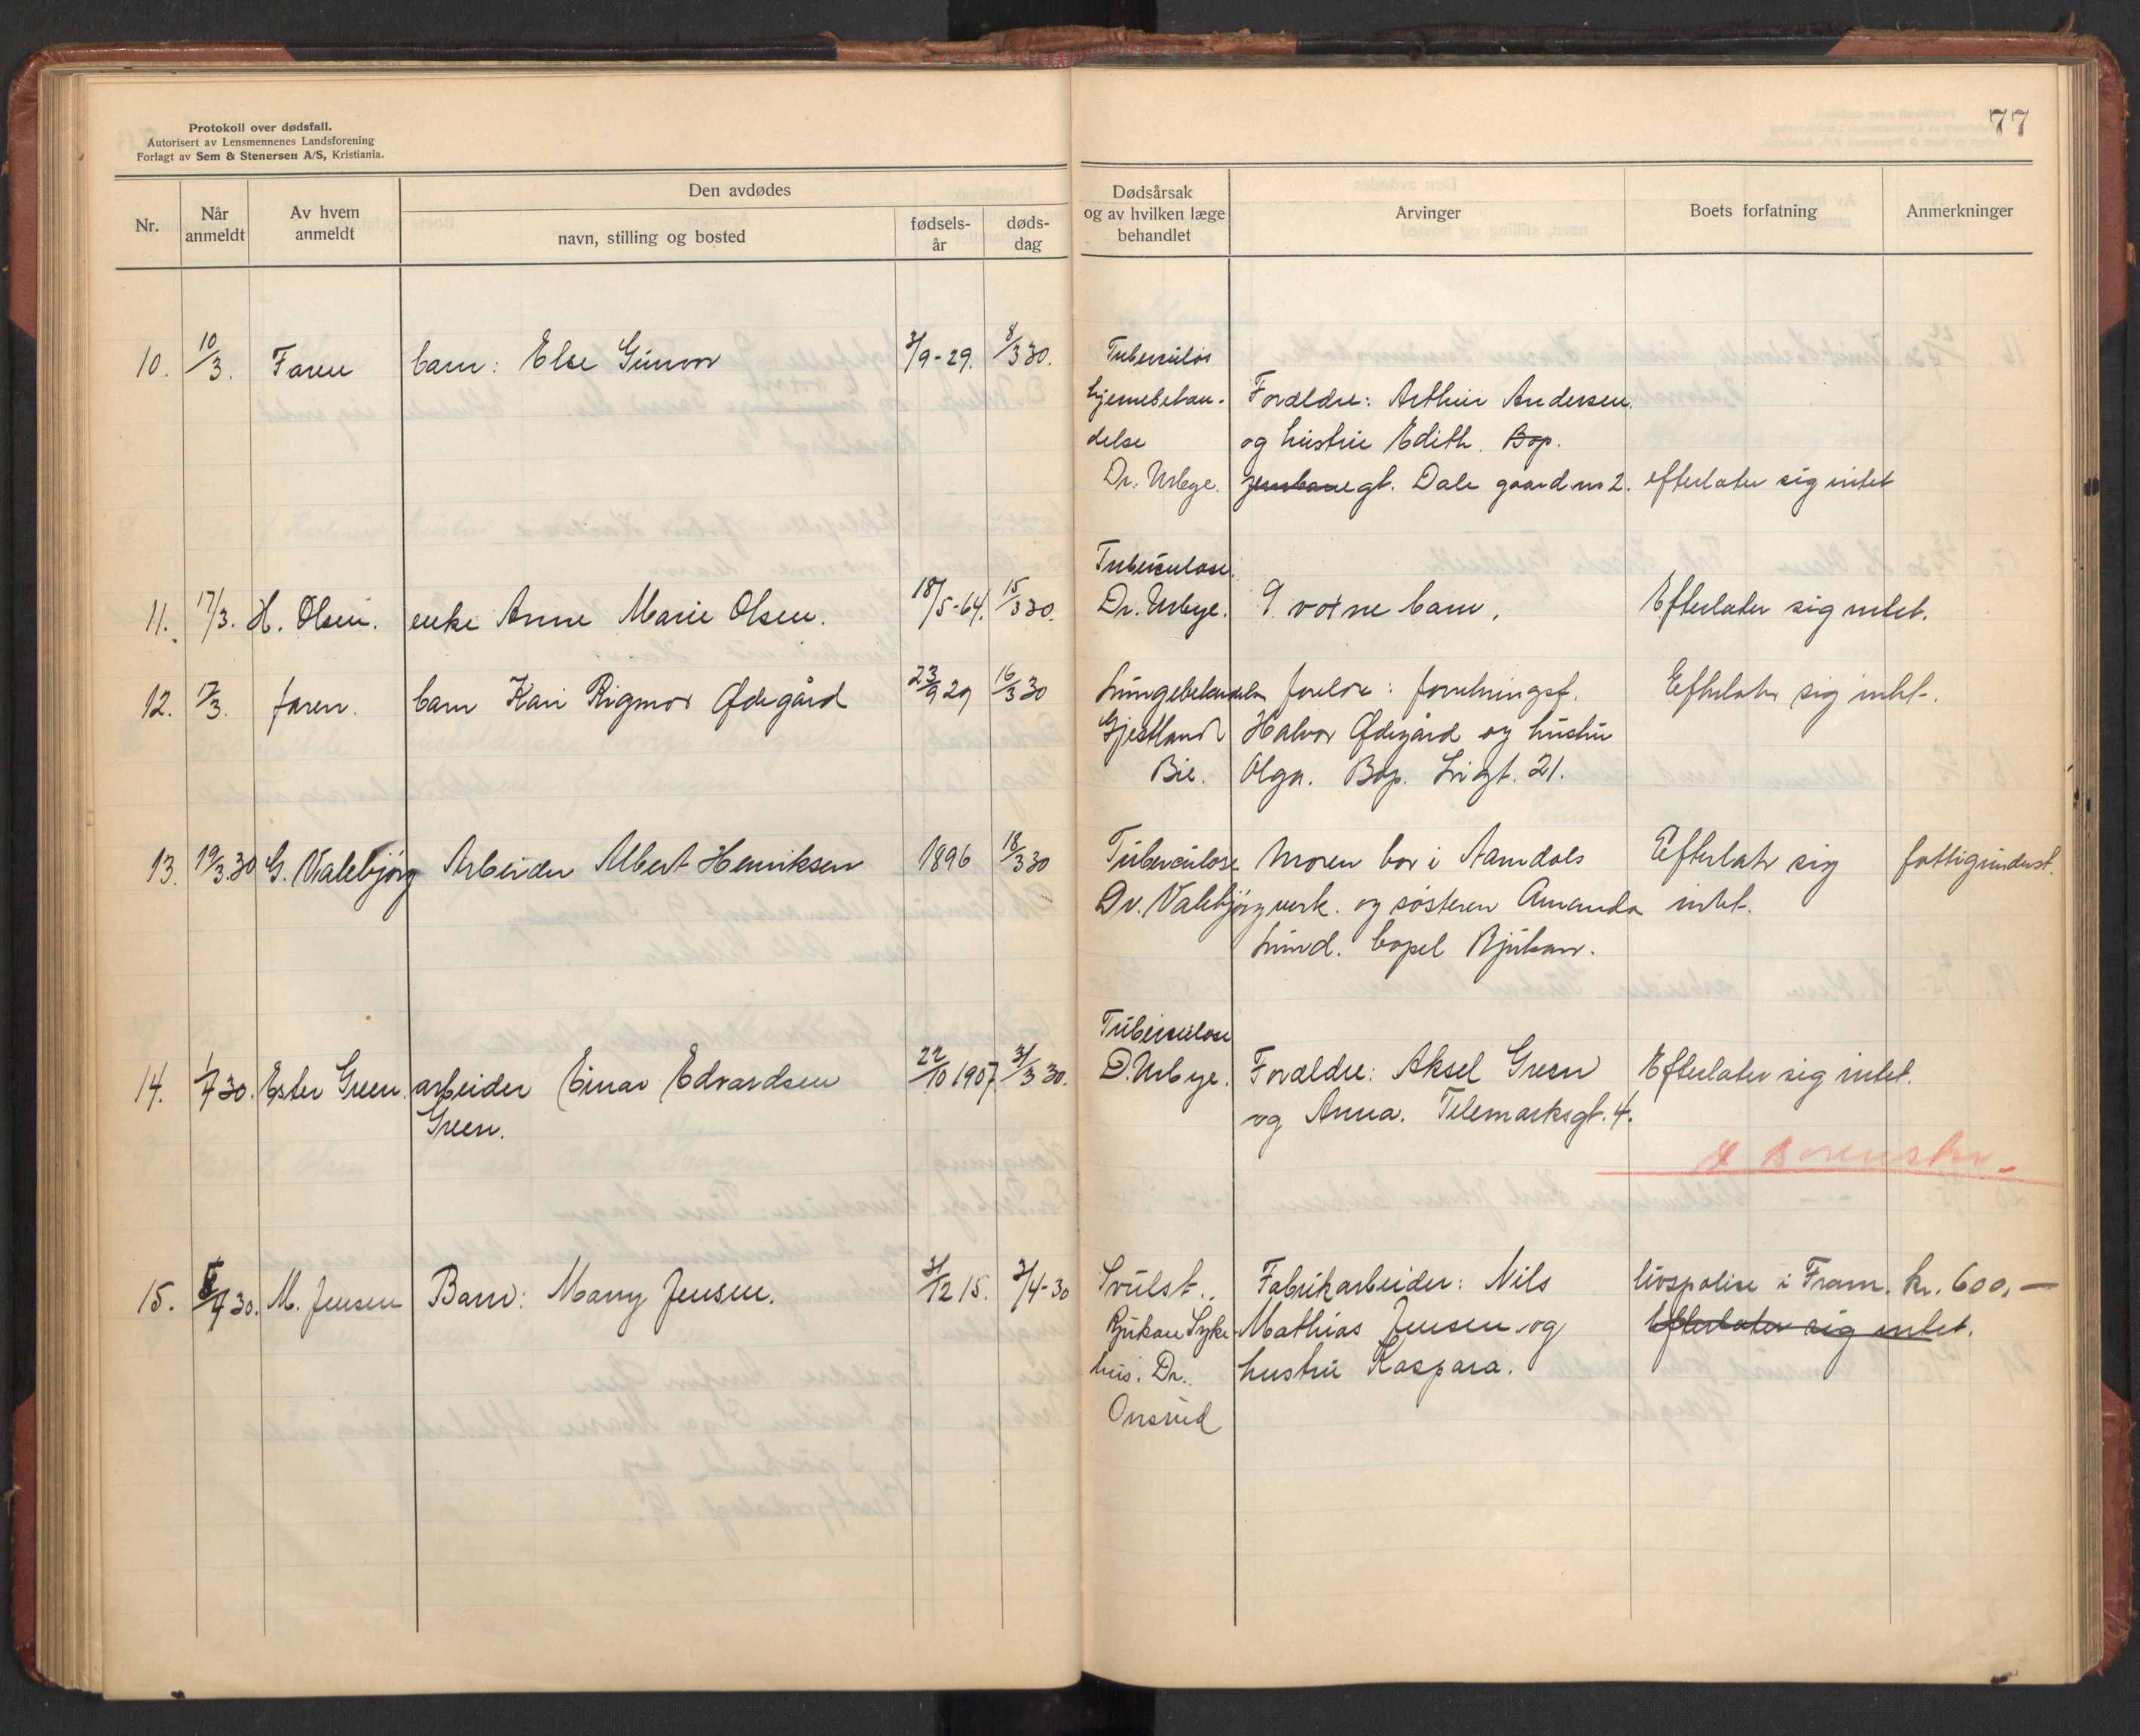 Protokoll over dødsfall.
Autorisert av Lensmennenes Landsforening
Forlagt av Sem & Stenersen A/S, Kristiania.
77
Nr.
Når anmeldt
Av hvem anmeldt
Den avdødes
navn, stilling og bosted
fødsels-år
døds-dag
Dødsårsak og av hvilken læge behandlet
Arvinger
Boets forfatning
Anmerkninger
10. 10/3. Faren barn: Else Gunvor 3/9-29. 8/3 30. Tuberculøs
hjernebetæn- Forældre: Arthur Andersen.
delse og hustru Edith. Bop.
Dr. Utbye. gt. Dale gaard nr 2. efterlater sig intet
Tuberculose.
11. 17/3. H. Olsen. enke Anne Marie Olsen. 18/5-64. 15/3 30. Dr. Utbye. 9 voxne barn. Efterlater sig intet.
12. 17/3. faren. barn Kari Rigmor Ødegård 23/9 29 16/3 30 Lungebetændelse forelre: forretningsf. Efterlater sig intet.
Gjestland Halvor Ødegård og hustru
Bie. Olga. Bop. Ligt. 21.
13. 19/3.30 G. Valebjørg Arbeider Albert Henriksen 1896 18/3 30 Tuberculose Moren bor i Aamdals Efterlater sig fattigunderst.
Dr. Valebjørg verk. og søsteren Amanda intet.
Lund. bopel Rjukan.
Tuberculose
14. 1/4 30. Ester Green. arbeider Einar Edvardsen 22/10 1907. 31/3 30. D. Utbye. Forældre: Aksel Green Efterlater sig intet.
Green. og Anna. Telemarksgt. 4.
15. 5/4 30. M. Jensen Barn: Marry Jensen. 31/12 15. 3/4-30 Svulst. Fabrikarbeider: Nils livspolise i Fram. kr. 600,—
Rjukan Syke- Mathias Jensen og Efterlater sig intet.
hus. Dr. hustru Kaspara.
Onsrud